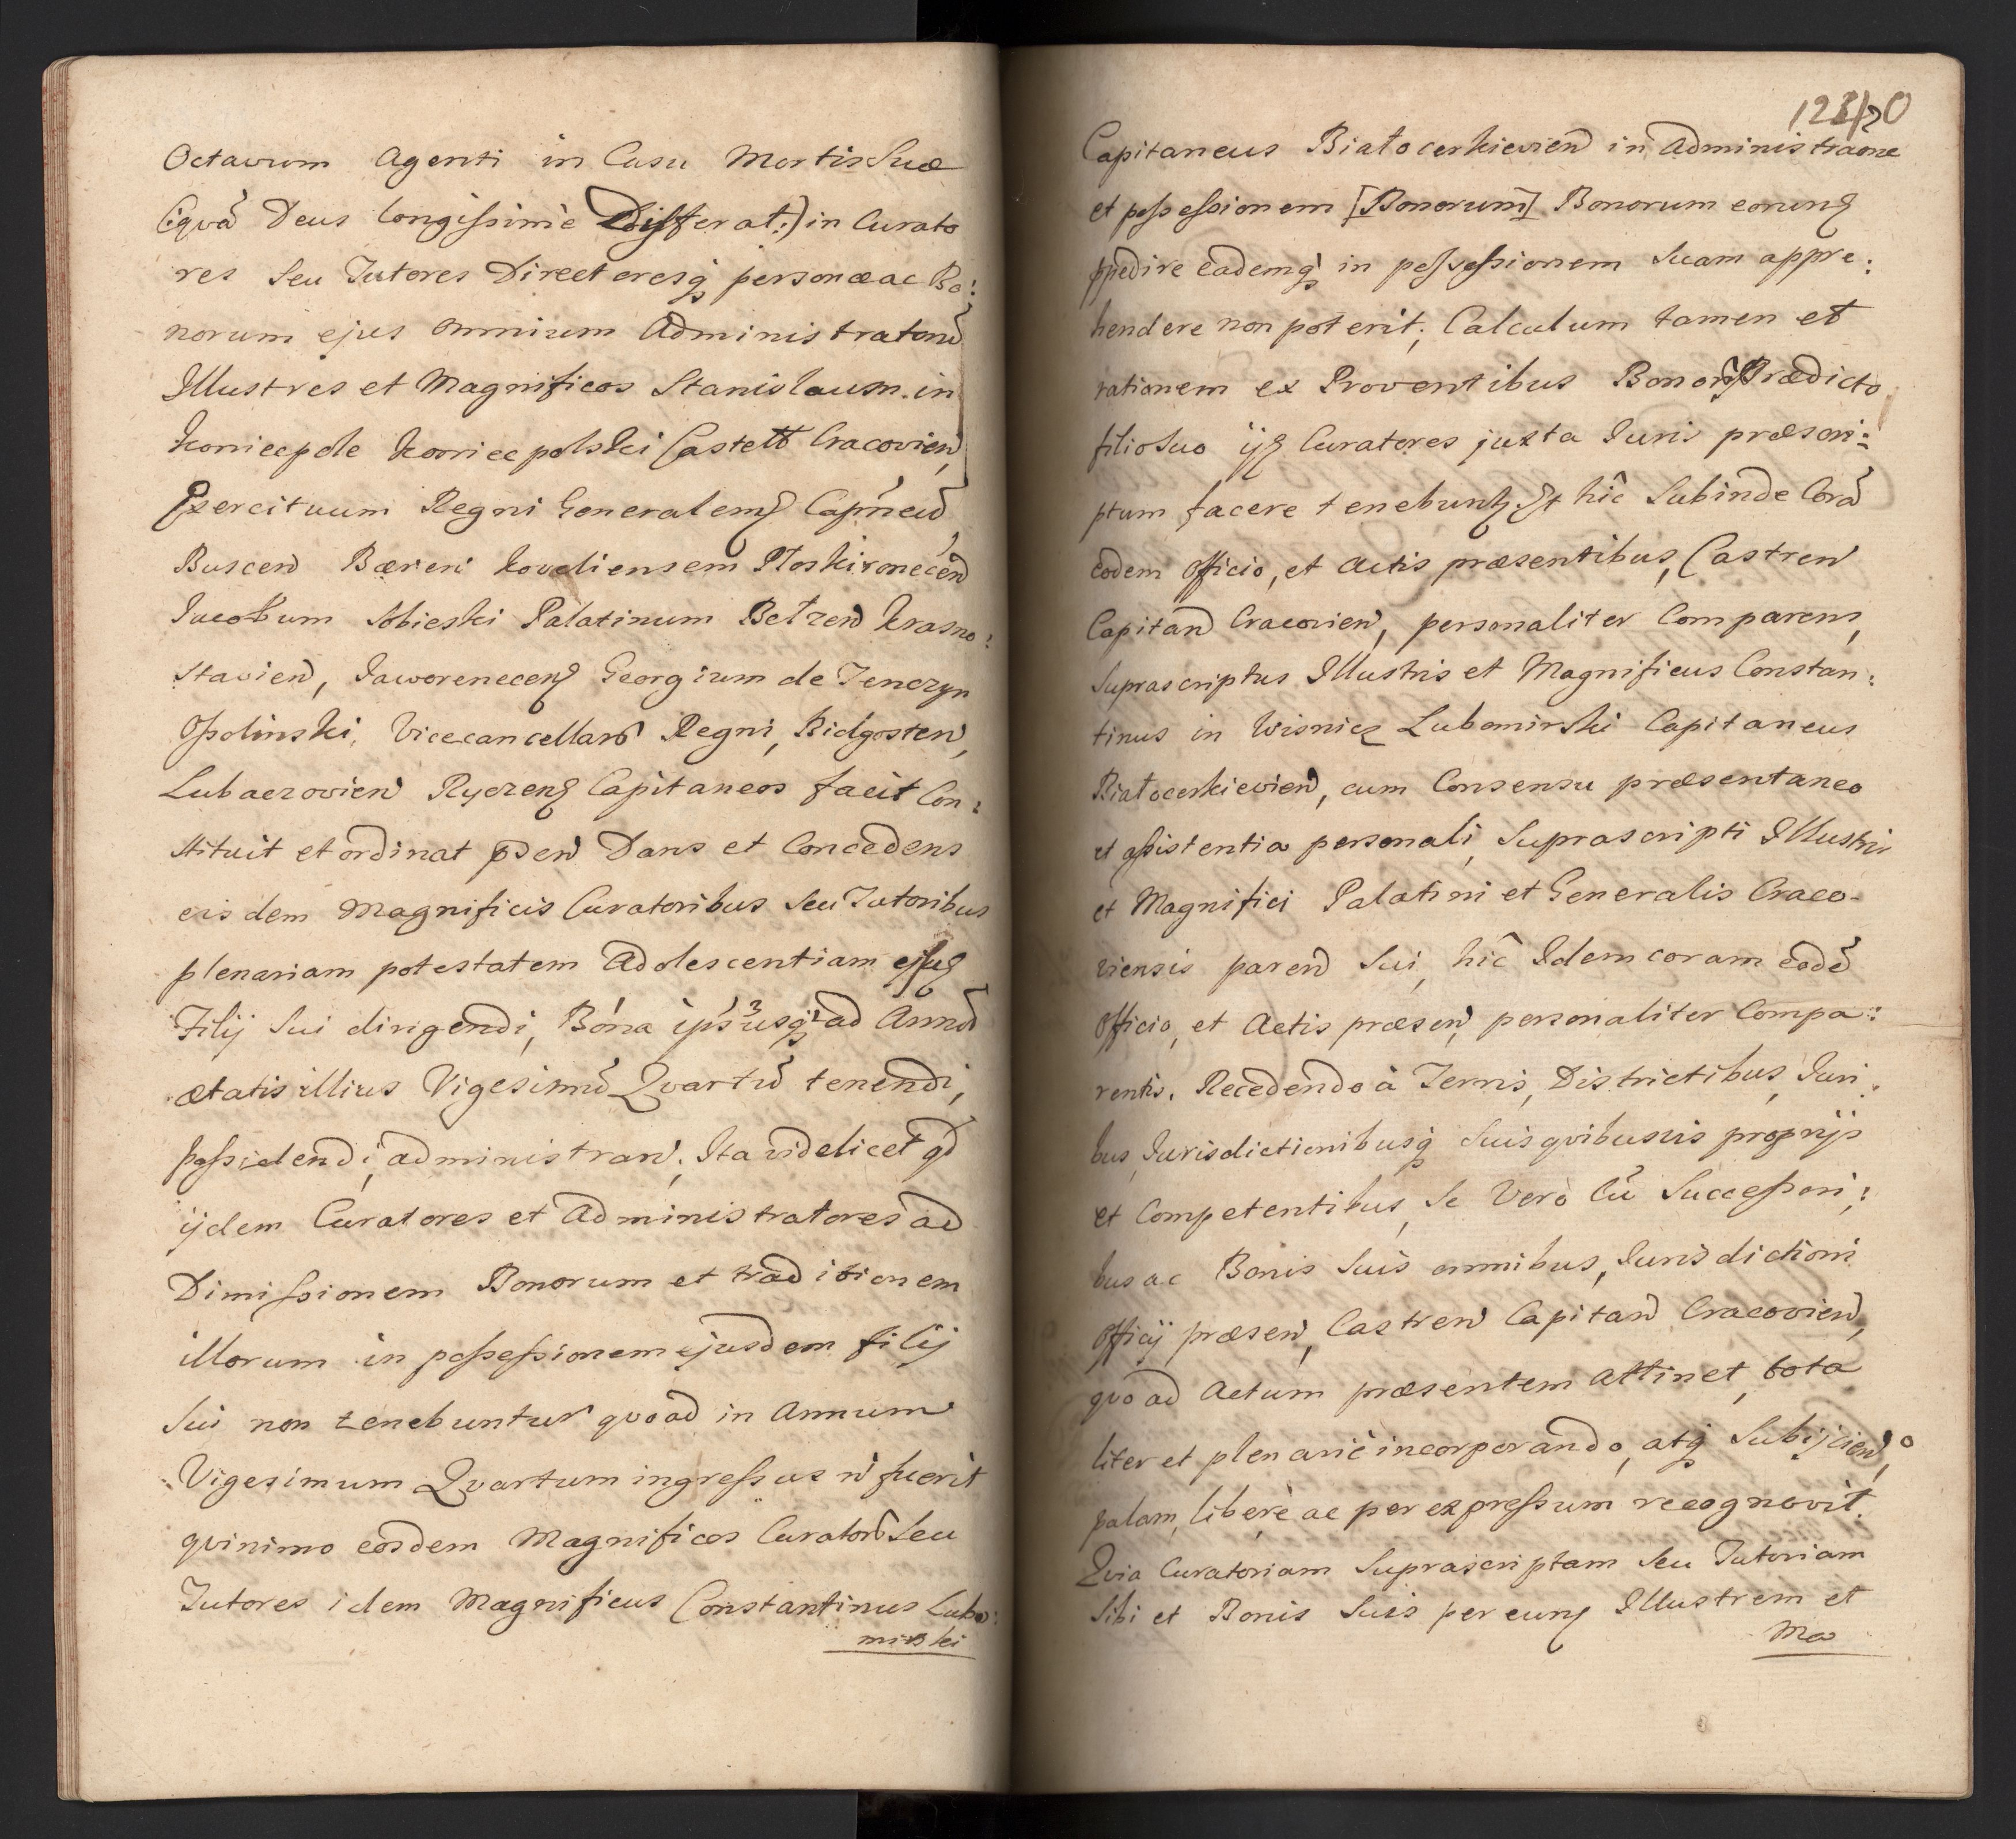 Octavum Agenti in Casu Mortis Suæ
(:quã Deus longissimè Differat:) in Curato
res Seu Tutores Directoresq personæ ac Bo:
norum ejus omnium Administratorũ
Illustres et Magnificos Stanislaum in
Koniecpole Koniecpolski Castell Cracovien,
Exercituum Regni Generalemq Capneũ
Buscen Bæreñ Koveliensem Ploskironecen
Jacobum Sobieski Palatinum Betzen Krasno:
stavien, Jaworenecenq Georgium de Tenczyn
Ossolinski, Vicecancellarũ Regni, Bidgosten,
Lubaczovien Ryczenq Capitaneos facit Con:
stituit et ordinat psen Dans et Concedens
eisdem Magnificis Curatoribus Seu Tutoribus
plenariam potestatem Adolescentiam ejusq
Filij Sui dirigendi, Bona ips³ usq² ad Annũ
ætatis illius Vigesimũ Qvartũ tenendi,
possidendi, administran, Ita videlicet qd
ijdem Curatores et Administratores ad
Dimissionem Bonorum et traditionem
illorum in possessionem ejusdem filij
Sui non tenebuntur qvoad in Annum
Vigesimum Qvartum ingressus ñ fuerit
qvinimo eosdem Magnificos Curatorẽ Seu
Tutores idem Magnificus Constantinus Lubo:
mirski
Capitaneus Białocerkievien in Administraone
et possessionem [Bonorum] Bonorum eorunq
ppedire eademq in possessionem Suam appre:
hendere non poterit; Calculum tamen et
rationem ex Proventibus Bonorũ Prædicto
filio Suo ijq Curatores juxta Juris præscri:
ptum facere tenebunt. Et hîc Subinde Corã
eodem Officio, et Actis præsentibus, Castren
Capitan Cracovien, personaliter Comparens,
Suprascriptus Illustris et Magnificus Constan:
tinus in Wisnicz Lubomirski Capitaneus
Białocerkievien, cum Consensu præsentaneo
et assistentia personali, Suprascripti Illustris
et Magnifici Palatini et Generalis Craco-
viensis paren Sui, hîc Idem coram eodẽ
Officio, et Actis præsen, personaliter Compa:
rentis. Recedendo à Terris, Districtibus, Juri:
bus, Jurisdictionibusq Suis qvibusvis proprijs
et Competentibus, Se Verò Cũ Successori:
bus ac Bonis Suis omnibus, Jurisdictioni
Officij præsen, Castren Capitan Cracovien,
qvo ad Actum præsentem Attinet, tota
liter et plenariè incorporando, atq Subijcien,
palam, liberè ac per expressum recognovit.
Qvia Curatoriam Suprascriptam Seu Tutoriam
Sibi et Bonis Suis per eunq Illustrem et
Ma